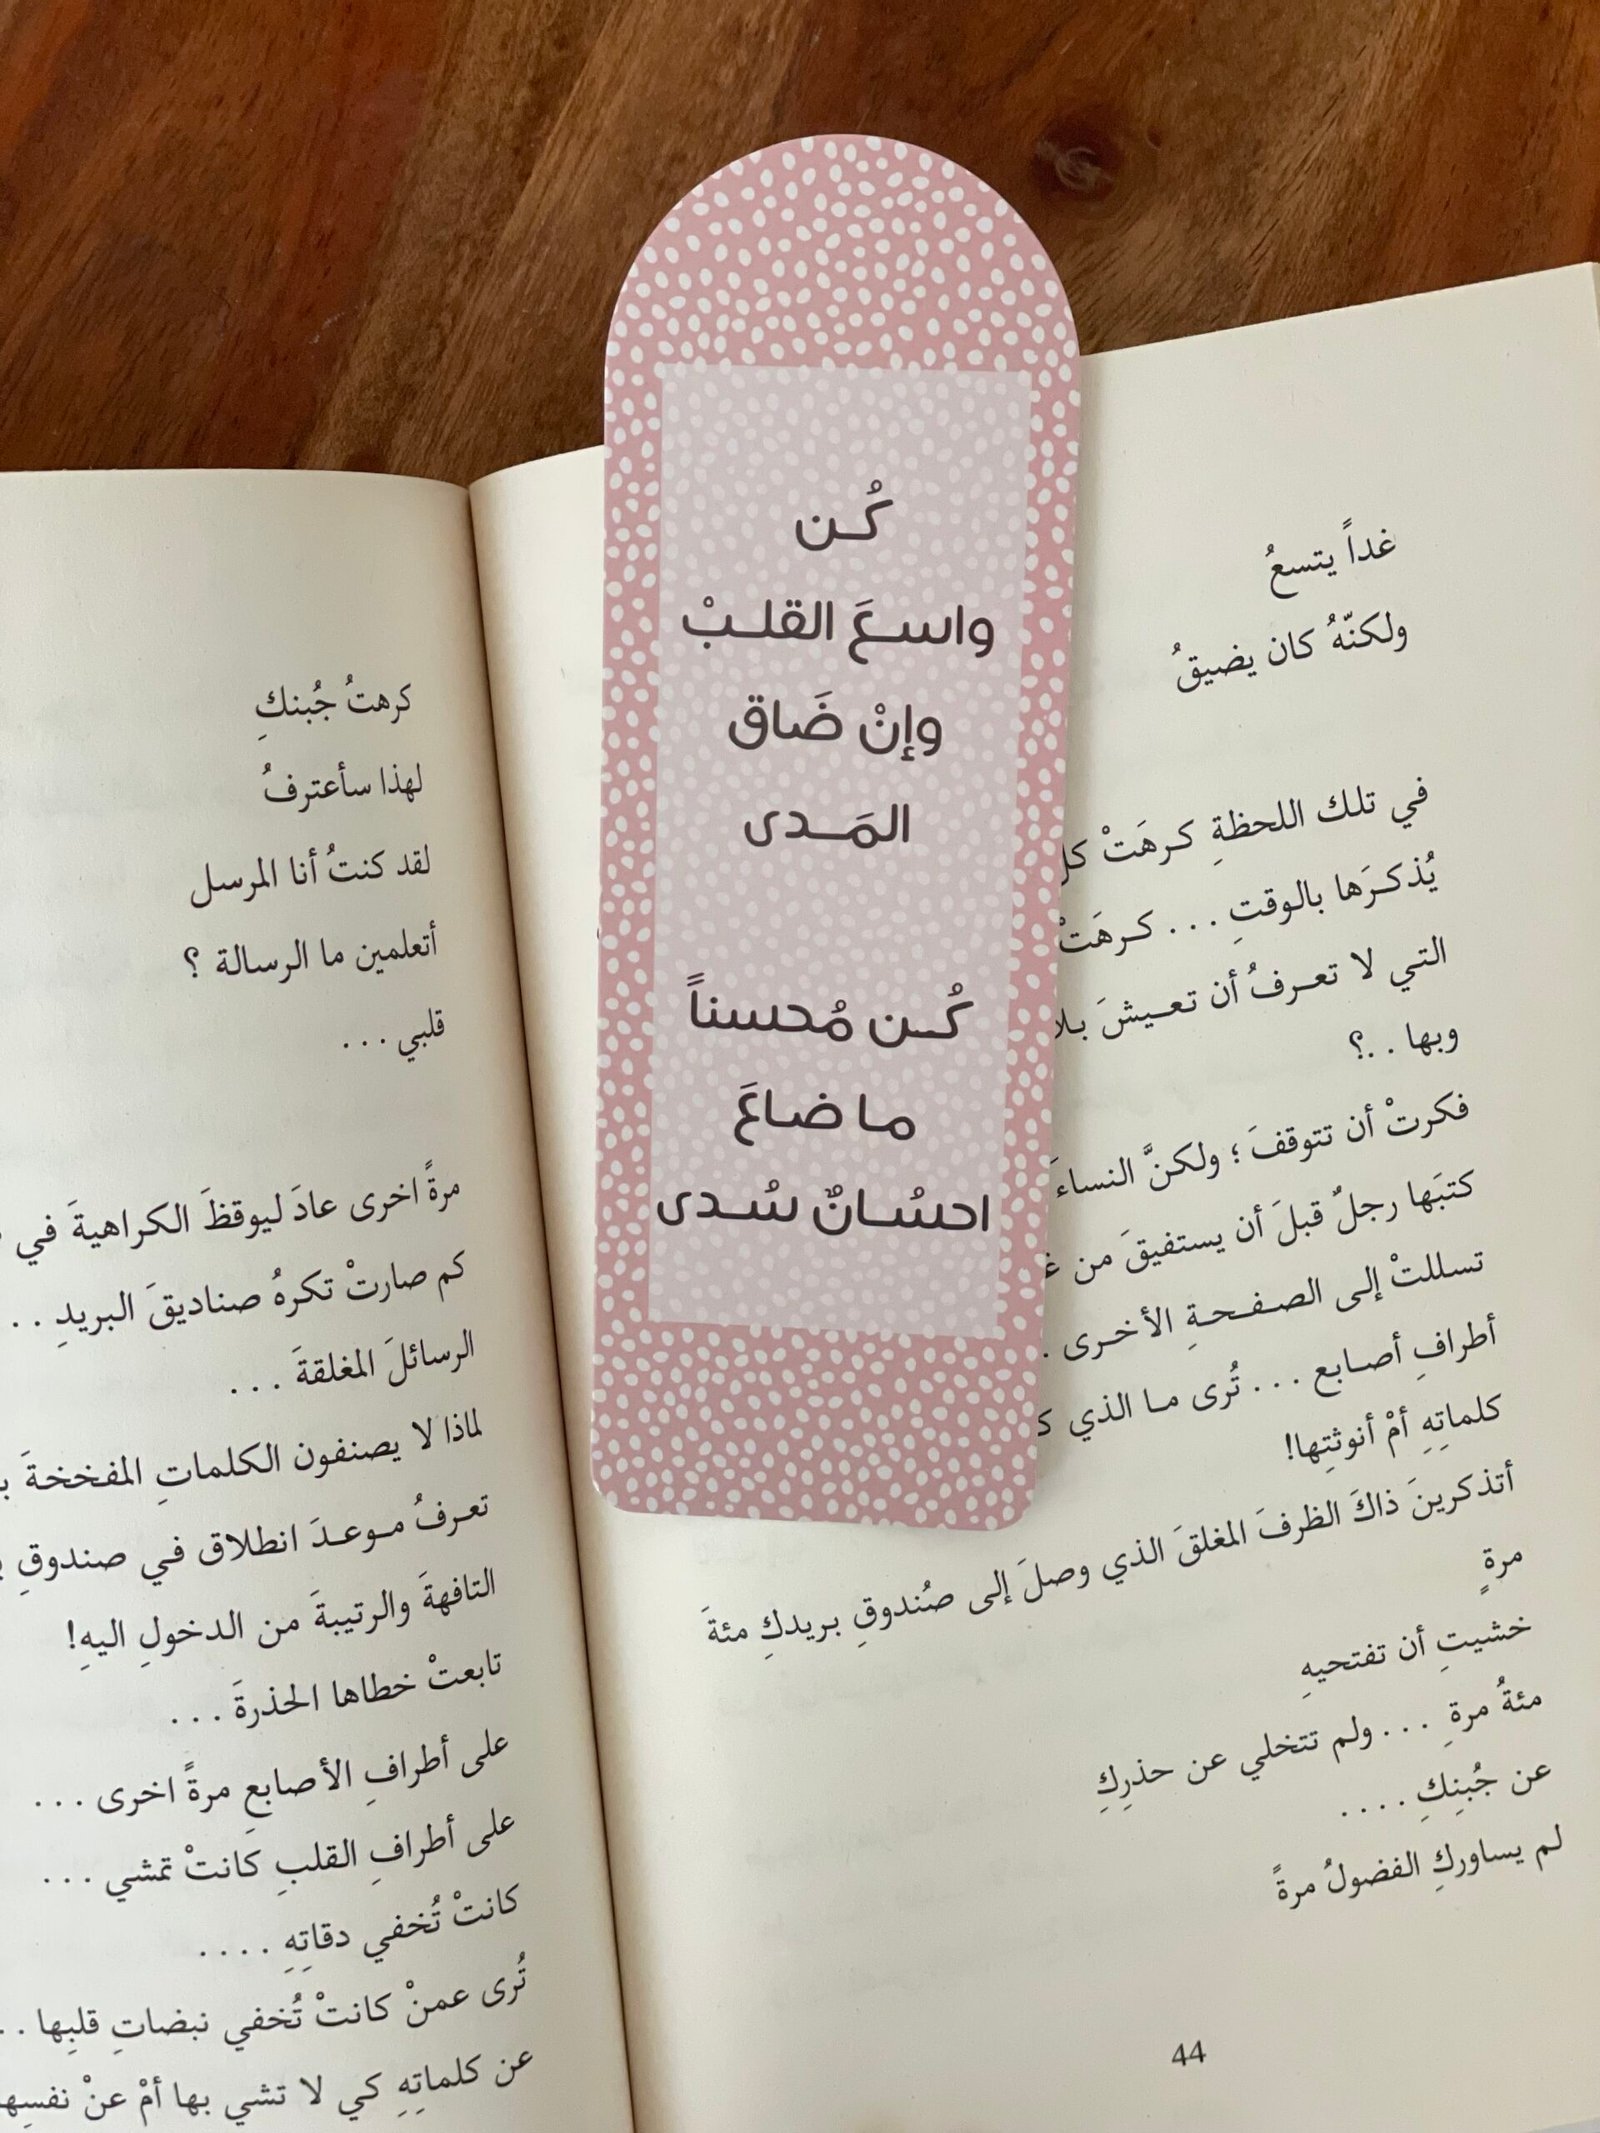 كُـن
واسـعَ القلـبْ
وإنْ ضَاق
المَـدى
كُـن مُحسناً
ما ضاعَ
احسُـانٌ سُـدى
غداً يتسعُ
ولكنّهُ كان يضيقُ
في تلك اللحظةِ كرهَتْ
يُذكرَها بالوقتِ ... كرهَتْ
التي لا تعرفُ أن تعيشَ
وبها ..؟
فكرتْ أن تتوقفَ ؛ ولكنَّ النساءَ
كتبَها رجلٌ قبلَ أن يستفيقَ من
تسللتْ إلى الصفحةِ الأخرى .
أطرافِ أصابع ... تُرى ما الذي
كلماتِهِ أمْ أنوثتِها!
أتذكرينَ ذاكَ الظرفَ المغلقَ الذي وصلَ إلى صُندوقِ بريدكِ مئةَ
مرةٍ
خشيتِ أن تفتحيهِ
مئةُ مرةِ ... ولم تتخلي عن حذرِكِ
عن جُبنِكِ ....
لم يساوركِ الفضولُ مرةً
44
كرهتُ جُبنكِ
لهذا سأعترفُ
لقد كنتُ أنا المرسل
أتعلمين ما الرسالة ؟
قلبي ...
مرةً اخرى عادَ ليوقظَ الكراهيةَ في
كم صارتْ تكرهُ صناديقَ البريدِ ..
الرسائلَ المغلقةَ ...
لماذا لا يصنفون الكلماتِ المفخخةَ
تعرفُ موعدَ انطلاق في صندوقِ
التافهةَ والرتيبةَ من الدخولِ اليهِ!
تابعتْ خطاها الحذرةَ ...
على أطرافِ الأصابعِ مرةً اخرى ...
على أطرافِ القلبِ كانتْ تمشي ...
كانتْ تُخفي دقاتِهِ ....
تُرى عمنْ كانتْ تُخفي نبضاتِ قلبِها ..
عن كلماتِهِ كي لا تشي بها أمْ عنْ